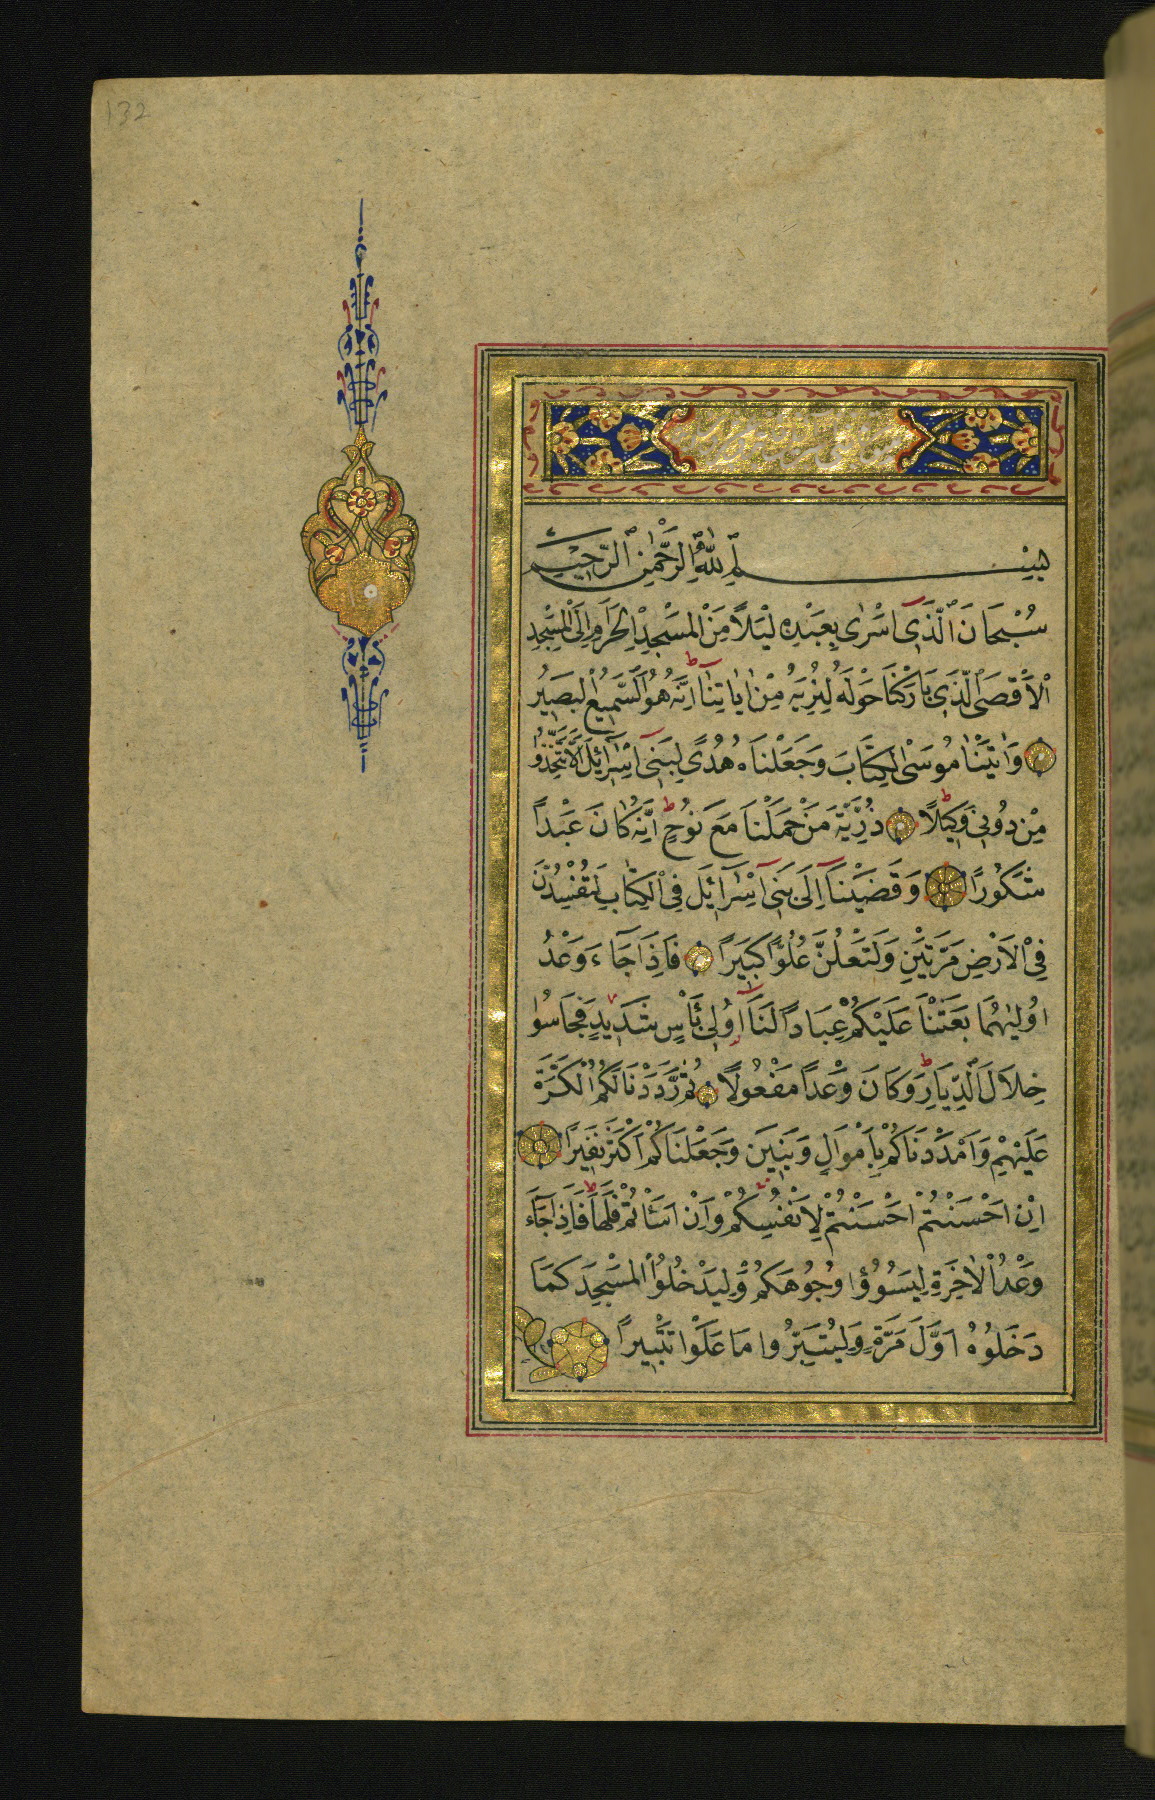 132
بِسْمِ ٱللّٰهِ ٱلرَّحْمٰنِ ٱلرَّحِيْمِ
سُبْحَانَ ٱلَّذٖٓى اَسْرٰى بِعَبْدِهٖ لَيْلًا مِنَ ٱلْمَسْجِدِ ٱلْحَرَامِ اِلَى ٱلْمَسْجِدِ
ٱلْاَقْصَى ٱلَّذٖى بَارَكْنَا حَوْلَهُ لِنُرِيَهُ مِنْ اٰيَاتِنَاۜ اِنَّهُ هُوَ ٱلسَّمٖيعُ ٱلْبَصٖيرُ
وَاٰتَيْنَا مُوسَى ٱلْكِتَابَ وَجَعَلْنَاهُ هُدًى لِبَنٖٓى اِسْرَآئٖلَ اَلَّا تَتَّخِذُوا
مِنْ دُونٖى وَكٖيلًا ذُرِّيَّةَ مَنْ حَمَلْنَا مَعَ نُوحٍ اِنَّهُ كَانَ عَبْدًا
شَكُورًا وَقَضَيْنَآ اِلٰى بَنٖٓى اِسْرَآئٖلَ فِى ٱلْكِتَابِ لَتُفْسِدُنَّ
فِى ٱلْاَرْضِ مَرَّتَيْنِ وَلَتَعْلُنَّ عُلُوًّا كَبٖيرًا فَاِذَا جَآءَ وَعْدُ
اُولٰيهُمَا بَعَثْنَا عَلَيْكُمْ عِبَادًا لَنَآ اُولٖى بَأْسٍ شَدٖيدٍ فَجَاسُوا
خِلَالَ ٱلدِّيَارِ وَكَانَ وَعْدًا مَفْعُولًا ثُمَّ رَدَدْنَا لَكُمُ ٱلْكَرَّةَ
عَلَيْهِمْ وَاَمْدَدْنَاكُمْ بِاَمْوَالٍ وَبَنٖينَ وَجَعَلْنَاكُمْ اَكْثَرَ نَفٖيرًا
اِنْ اَحْسَنْتُمْ اَحْسَنْتُمْ لِاَنْفُسِكُمْ وَاِنْ اَسَأْتُمْ فَلَهَا فَاِذَا جَآءَ
وَعْدُ ٱلْاٰخِرَةِ لِيَسُوؤُا وُجُوهَكُمْ وَلِيَدْخُلُوا ٱلْمَسْجِدَ كَمَا
دَخَلُوهُ اَوَّلَ مَرَّةٍ وَلِيُتَبِّرُوا مَا عَلَوْا تَتْبٖيرًا